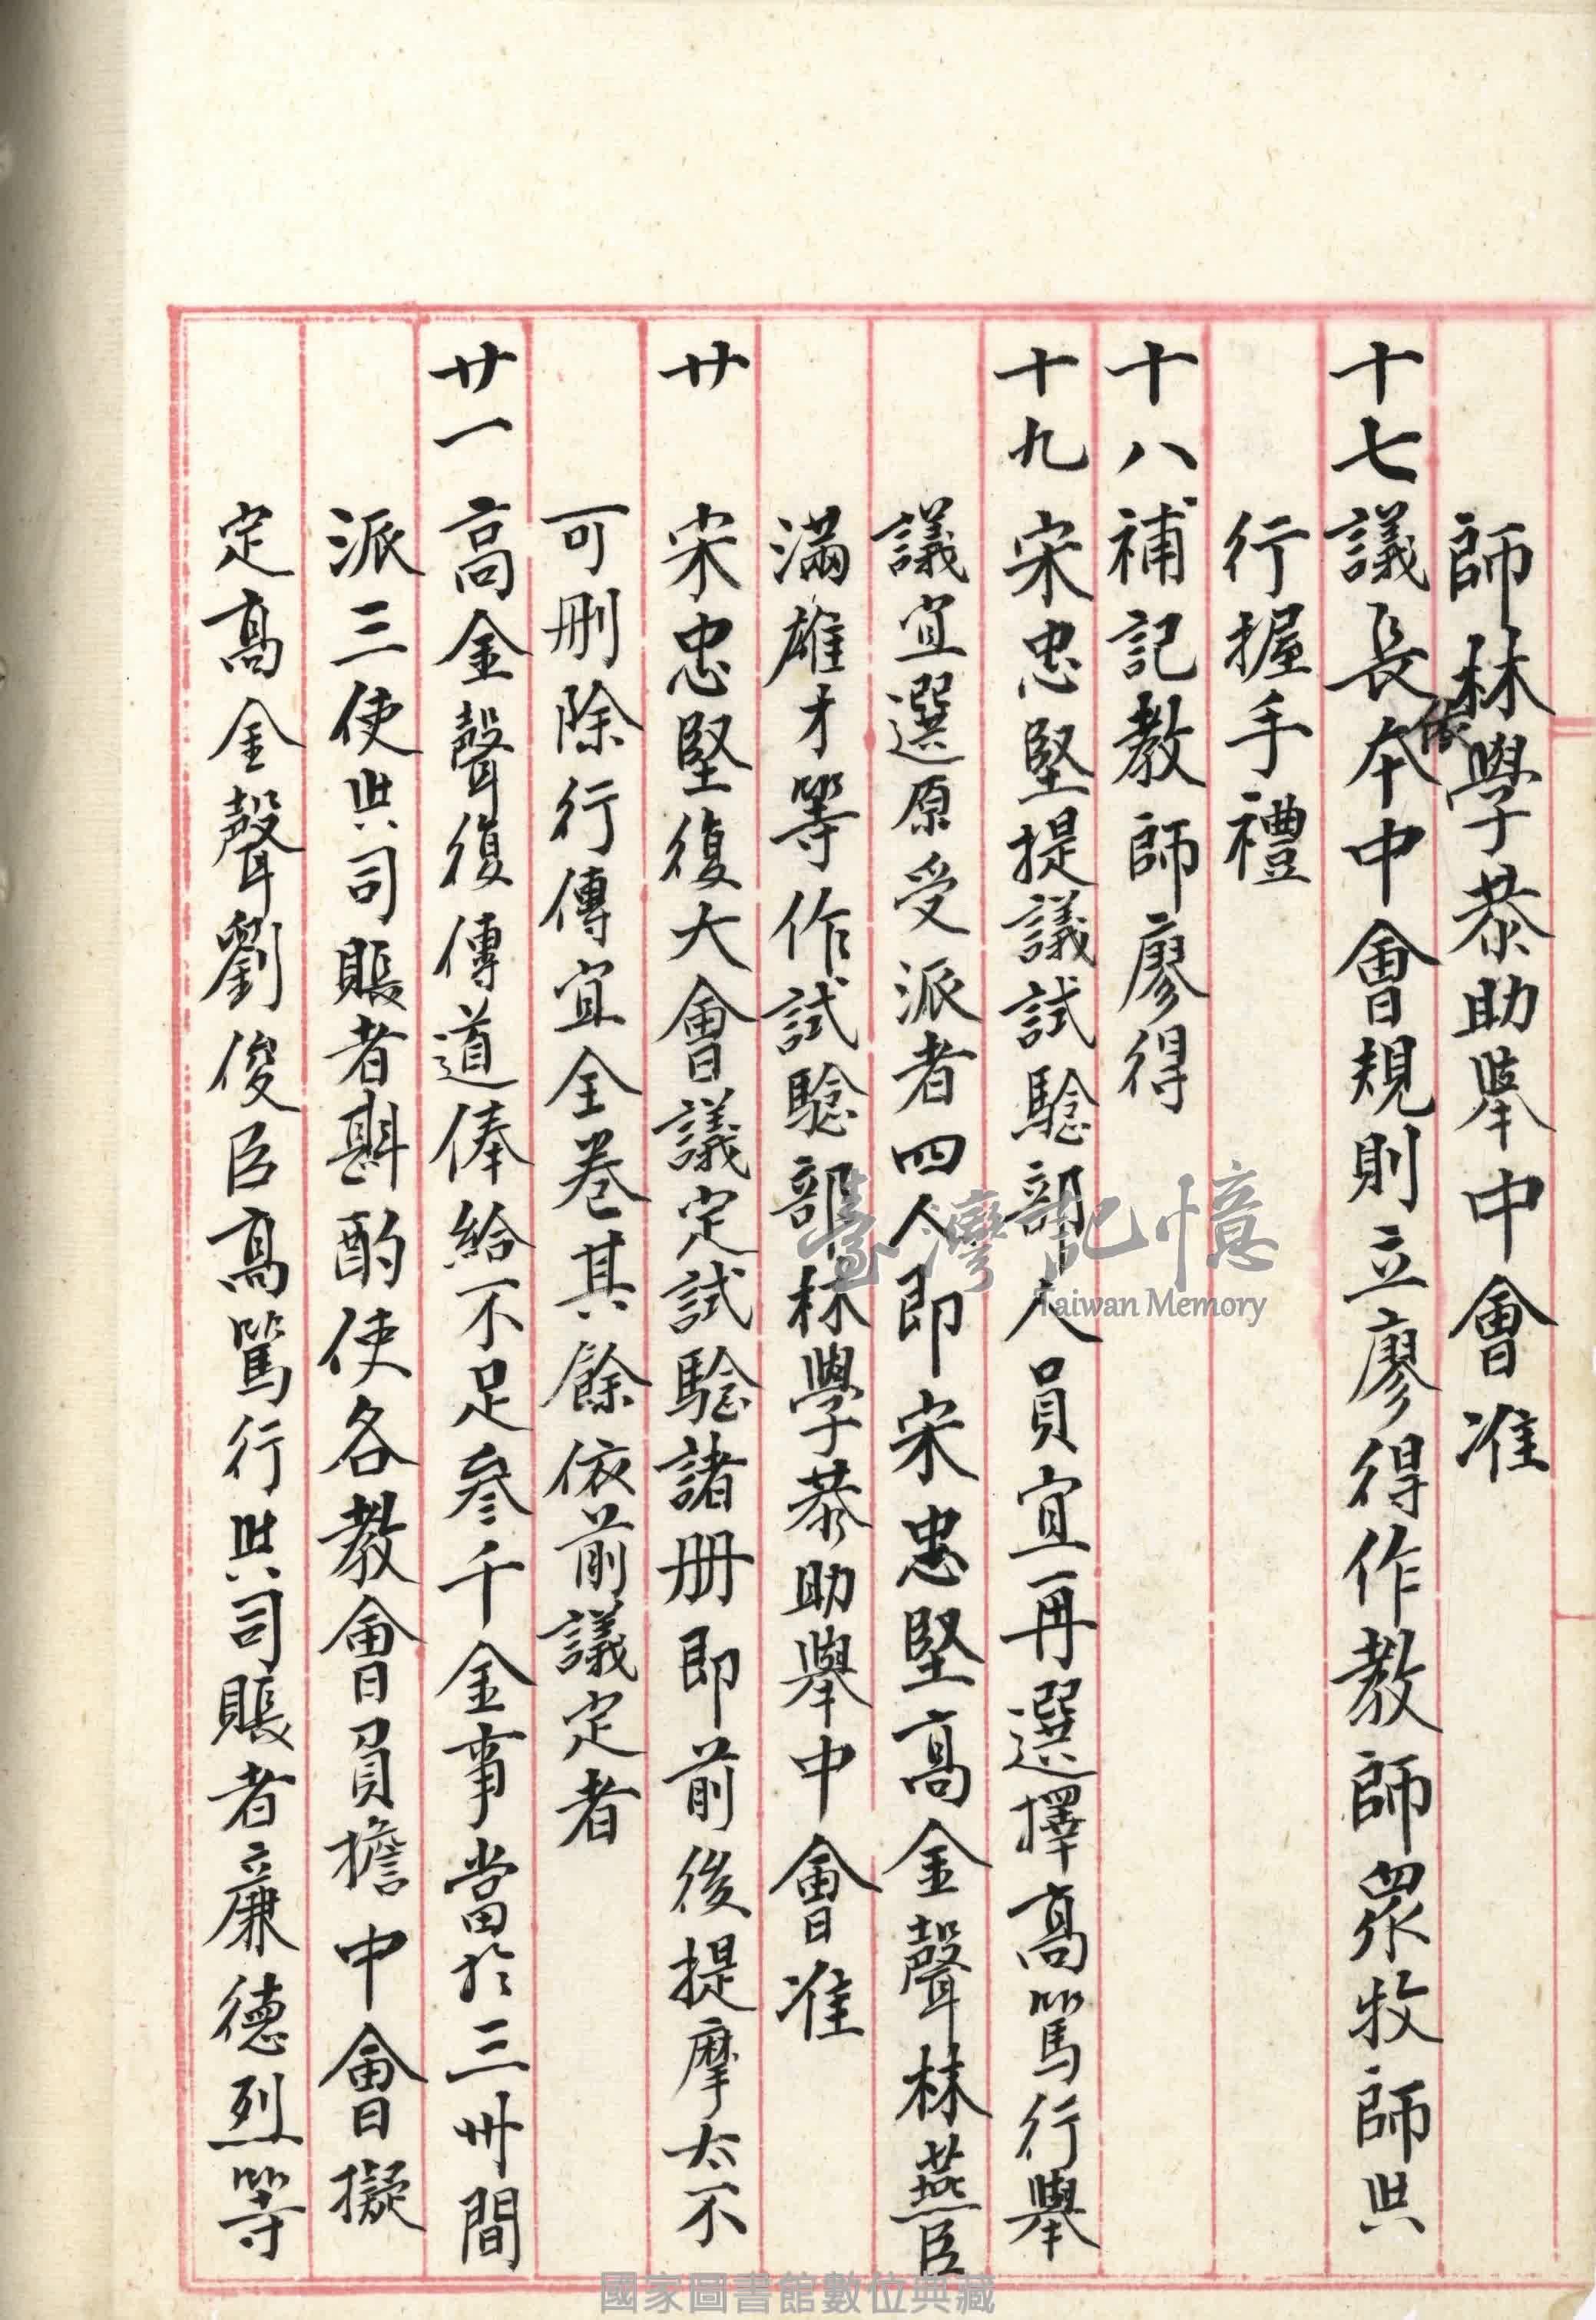 師林學恭助舉中會准
十七議長依本中會規則立廖得作教師眾牧師與
行握手禮
十八補記教師廖得
十九宋忠堅提議試驗部人員宜再選擇高篤行舉
議宜選原受派者四人即宋忠堅高金聲林燕臣
滿雄才等作試驗部林學恭助舉中會准
廿宋忠堅復大會議定試驗諸册即前後提摩太不
可刪除行傳宜全卷其餘依前議定者
廿一高金聲復傳道俸給不足參千金事當於三卅間
派三使與司賬者斟酌使各教會員擔中會擬
定高金聲劉俊臣高篤行與司賬者廉德烈等
臺灣記憶
Taiwan Memory
國家圖書館數位典藏